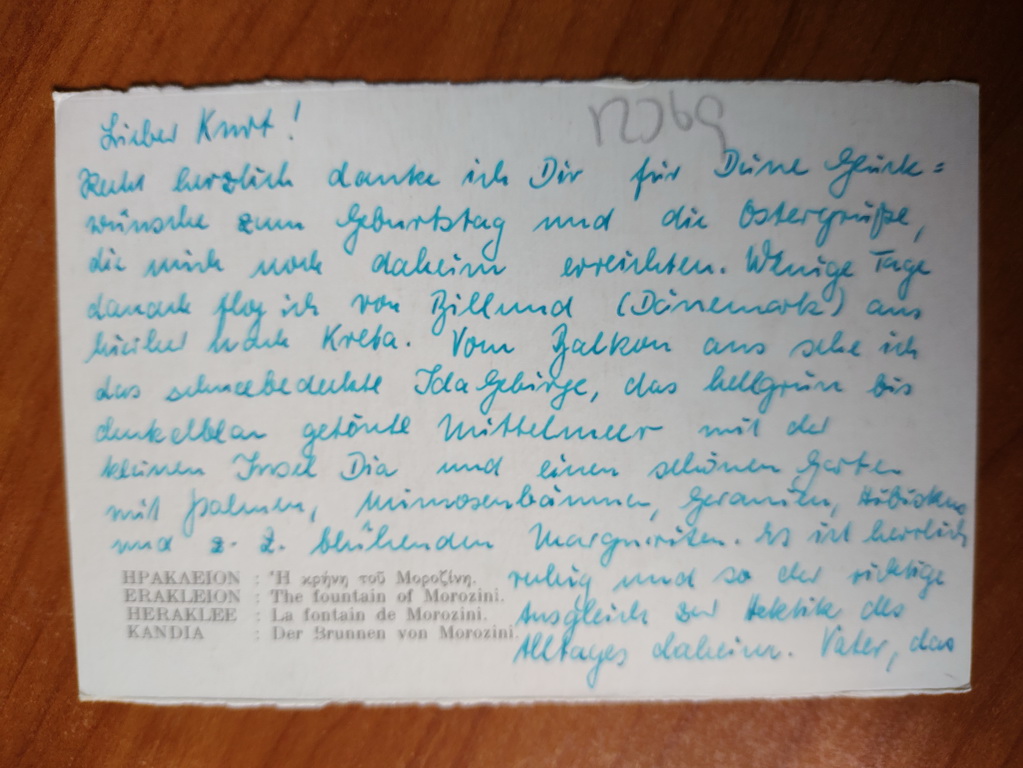 Lieber Kurt!
Recht herzlich danke ich Dir für Deine Glück=
wünsche zum Geburtstag und die Ostergrüße,
die mich noch daheim erreichten. Wenige Tage
danach flog ich von Billund (Dänemark) aus
hierher nach Kreta. Vom Balkon aus sehe ich
das schneebedeckte Ida Gebirge, das hellgrün bis
dunkelblau getönte Mittelmeer mit der
kleinen Insel Dia und einen schönen Garten
mit Palmen, Mimosenbäumen, Geranien, Hibisken
und z. Z. blühenden Margueriten. Es ist herrlich
ruhig und so der richtige
Ausgleich zur Hektik des
Alltages daheim. Vater, das
ΗΡΑΚΛΕΙΟΝ : Ἡ κρήνη τοῦ Μοροζίνη.
ERAKLEION : The fountain of Morozini.
HERAKLEE : La fontain de Morozini.
KANDIA : Der Brunnen von Morozini.